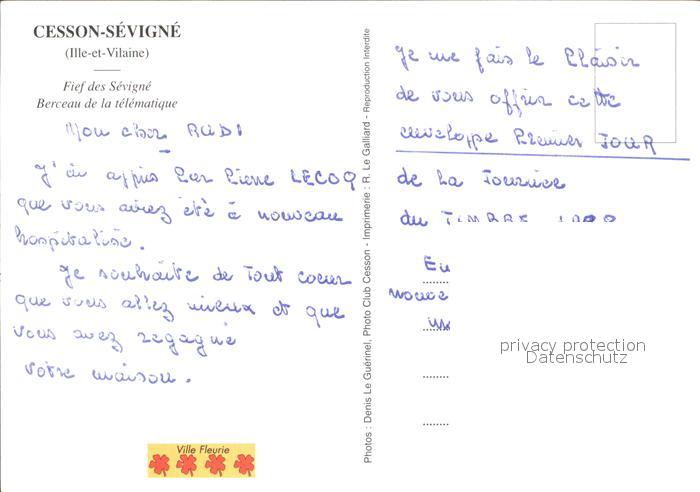 CESSON-SÉVIGNÉ
(Ille-et-Vilaine)
Fief des Sévigné
Berceau de la télématique
Mon cher RUDI
J'ai appris par Pierre LECOQ
que vous aviez été à nouveau
hospitalisé.
Je souhaite de tout coeur
que vous allez mieux et que
vous avez regagné
votre maison.
Ville Fleurie
Photos : Denis Le Guérinel, Photo Club Cesson - Imprimerie : R. Le Galliard - Reproduction Interdite
Je me fais le Plaisir
de vous offrir cette
enveloppe Premier JOUR
de la Journée
du TIMBRE
En
privacy protection
Datenschutz